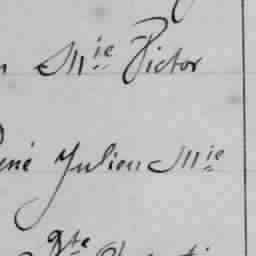 Mie Victor
ené Julien Mie